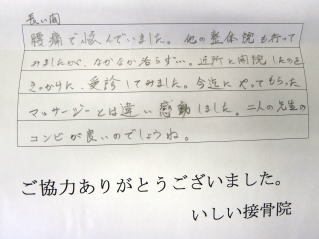 長い間
腰痛で悩んでいました。他の整体院も行って
みましたが、なかなか治らず…。近所と開院したのを
きっかけに、受診してみました。今迄にやってもらった
マッサージーとは違い感動しました。二人の先生の
コンビが良いのでしょうね。
ご協力ありがとうございました。
いしい接骨院